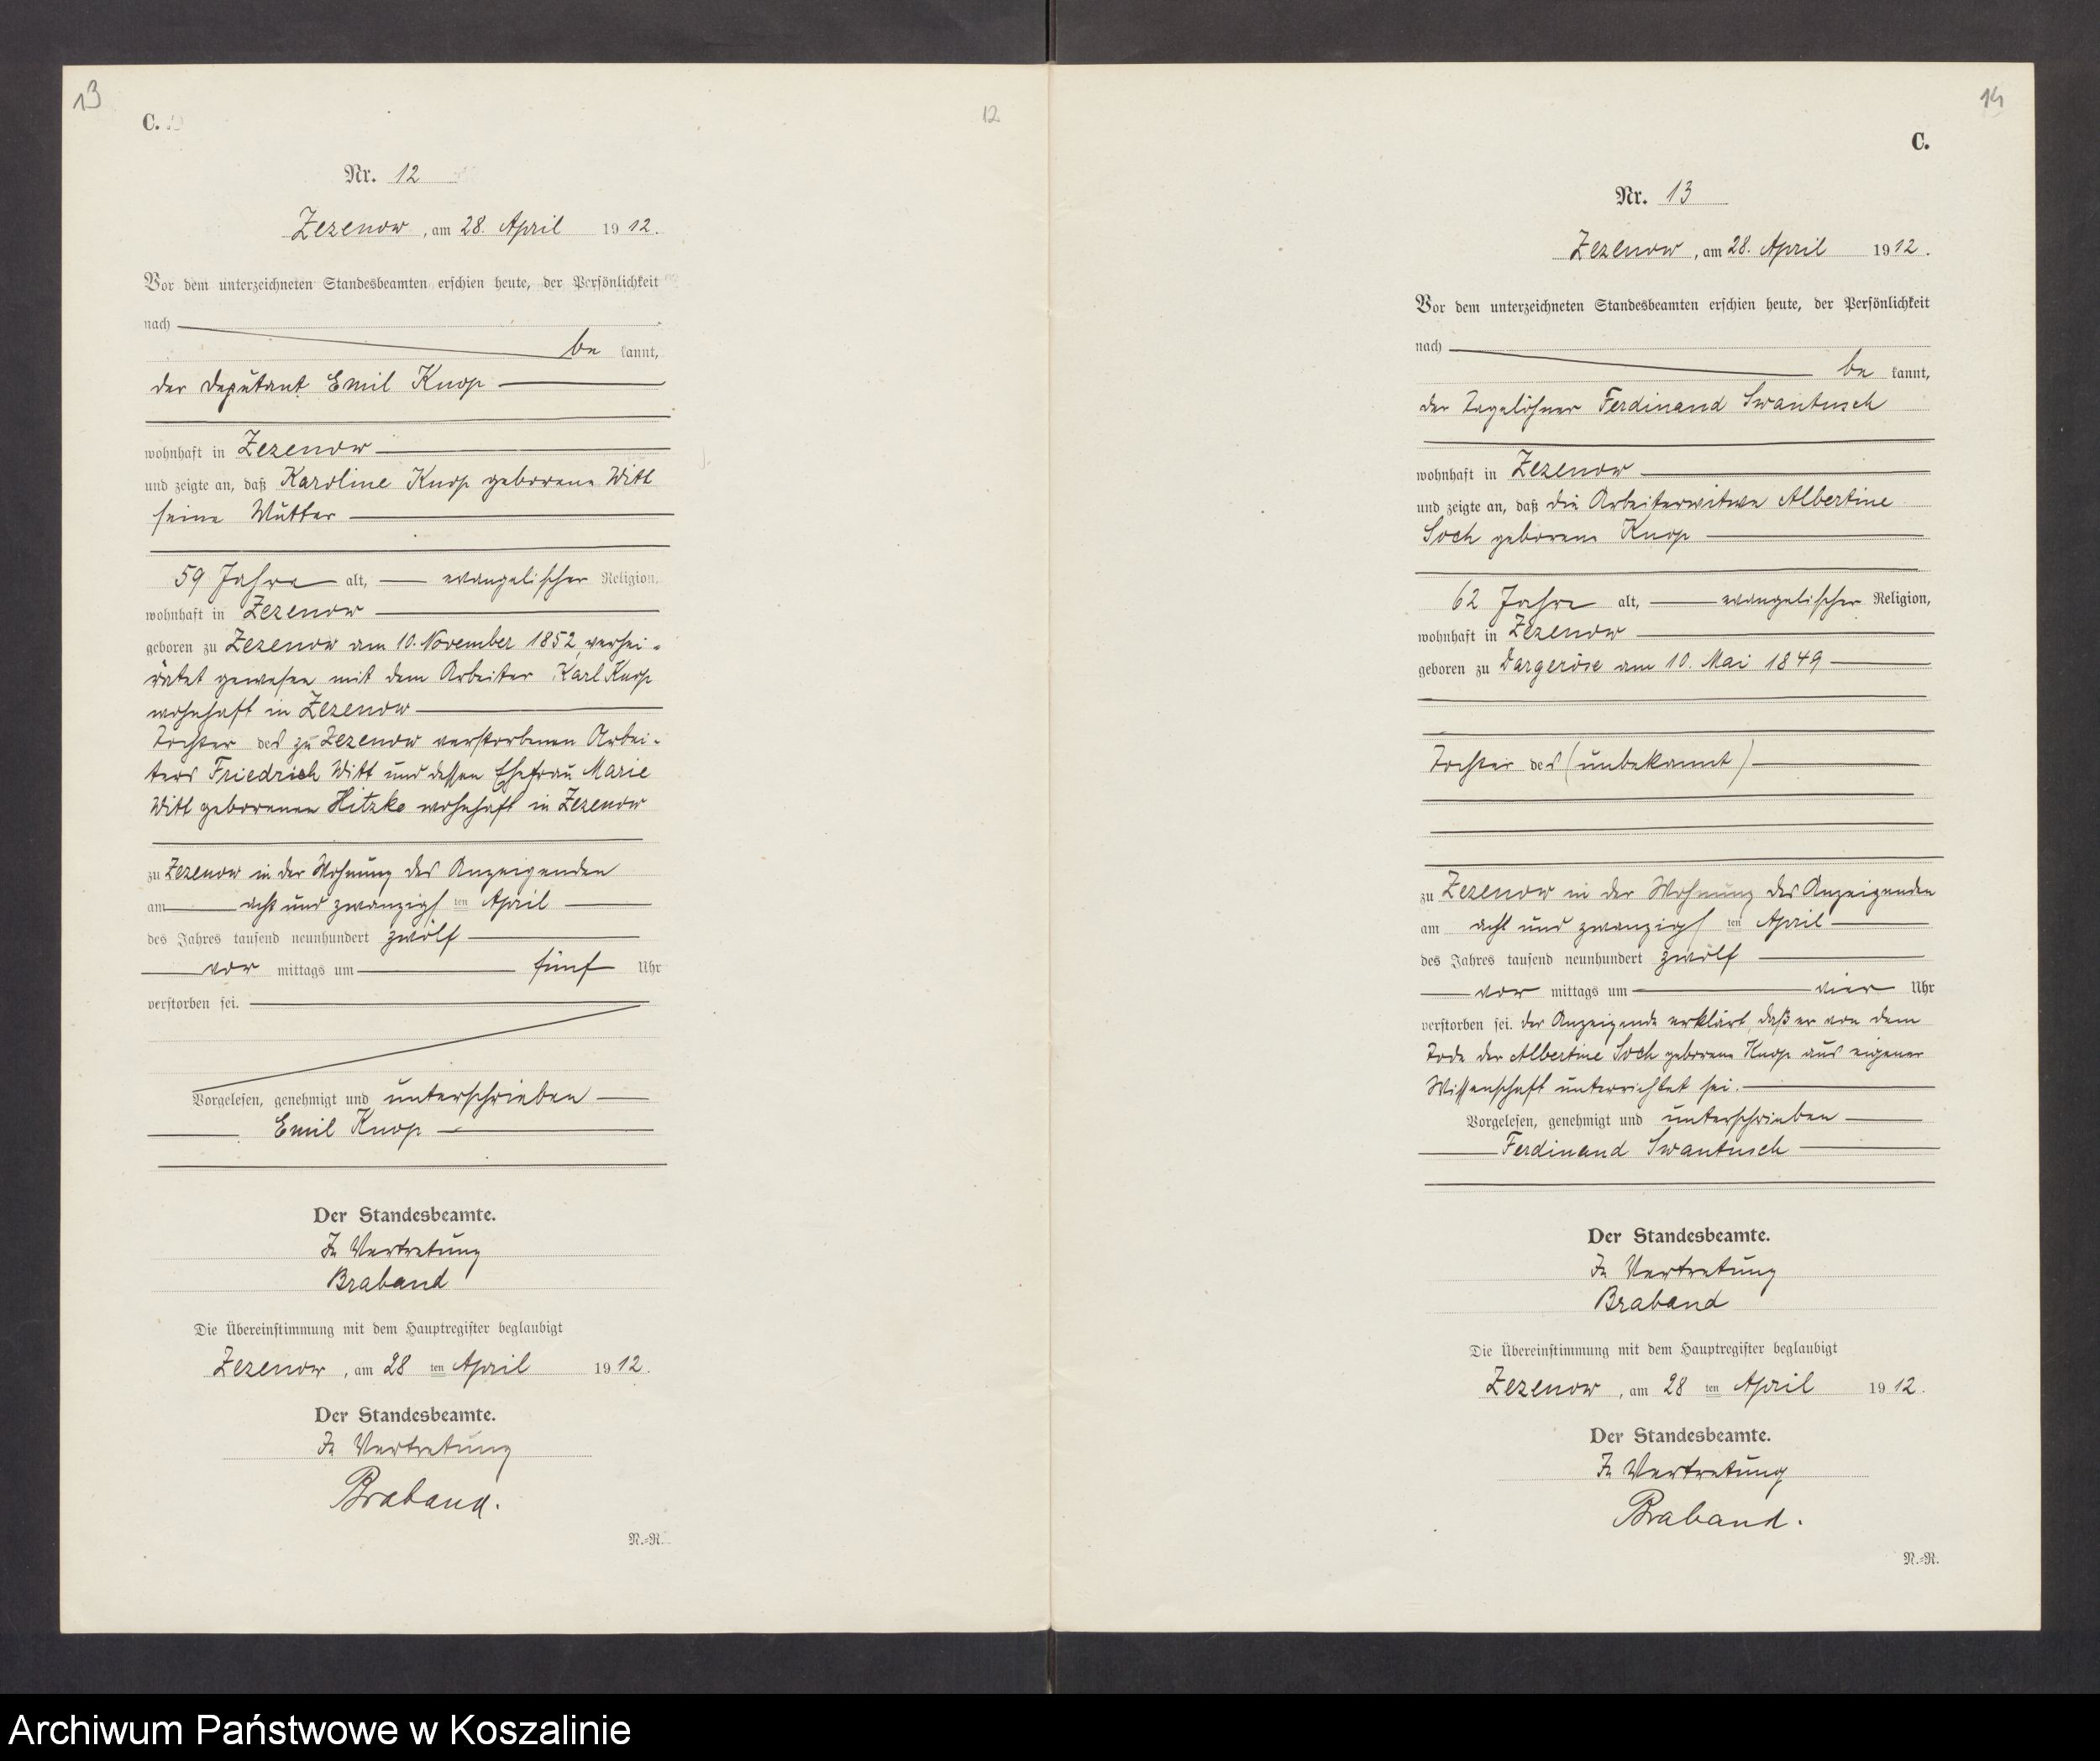 13
C.
12
Nr. 12
Zezenow, am 28. April 1912.
Vor dem unterzeichneten Standesbeamten erschien heute, der Persönlichkeit
nach
be kannt,
der Deputant Emil Knop
wohnhaft in Zezenow
und zeigte an, daß Karoline Knop geborene Witt
seine Mutter
59 Jahre alt, evangelischer Religion,
wohnhaft in Zezenow
geboren zu Zezenow am 10. November 1852, verhei-
ratet gewesen mit dem Arbeiter Karl Knop
wohnhaft in Zezenow
Tochter des zu Zezenow verstorbenen Arbei-
ters Friedrich Witt und dessen Ehefrau Marie
Witt geborenen Hitzke wohnhaft in Zezenow
zu Zezenow in der Wohnung des Anzeigenden
am acht und zwanzigsten April
des Jahres tausend neunhundert zwölf
vor mittags um fünf Uhr
verstorben sei.
Vorgelesen, genehmigt und unterschrieben
Emil Knop
Der Standesbeamte.
In Vertretung
Braband
Die Übereinstimmung mit dem Hauptregister beglaubigt
Zezenow, am 28 ten April 1912.
Der Standesbeamte.
In Vertretung
Braband.
N.=R.
14
C.
Nr. 13
Zezenow, am 28. April 1912.
Vor dem unterzeichneten Standesbeamten erschien heute, der Persönlichkeit
nach
be kannt,
der Tagelöhner Ferdinand Swantusch
wohnhaft in Zezenow
und zeigte an, daß die Arbeiterwitwe Albertine
Soch geborene Knop
62 Jahre alt, evangelischer Religion,
wohnhaft in Zezenow
geboren zu Dargeröse am 10. Mai 1849
Tochter des (unbekannt)
zu Zezenow in der Wohnung des Anzeigenden
am acht und zwanzigsten April
des Jahres tausend neunhundert zwölf
vor mittags um vier Uhr
verstorben sei. Der Anzeigende erklärt, daß er von dem
Tode der Albertine Soch geborene Knop aus eigener
Wissenschaft unterrichtet sei.
Vorgelesen, genehmigt und unterschrieben
Ferdinand Swantusch
Der Standesbeamte.
In Vertretung
Braband
Die Übereinstimmung mit dem Hauptregister beglaubigt
Zezenow, am 28 ten April 1912.
Der Standesbeamte.
In Vertretung
Braband.
N.=R.
Archiwum Państwowe w Koszalinie